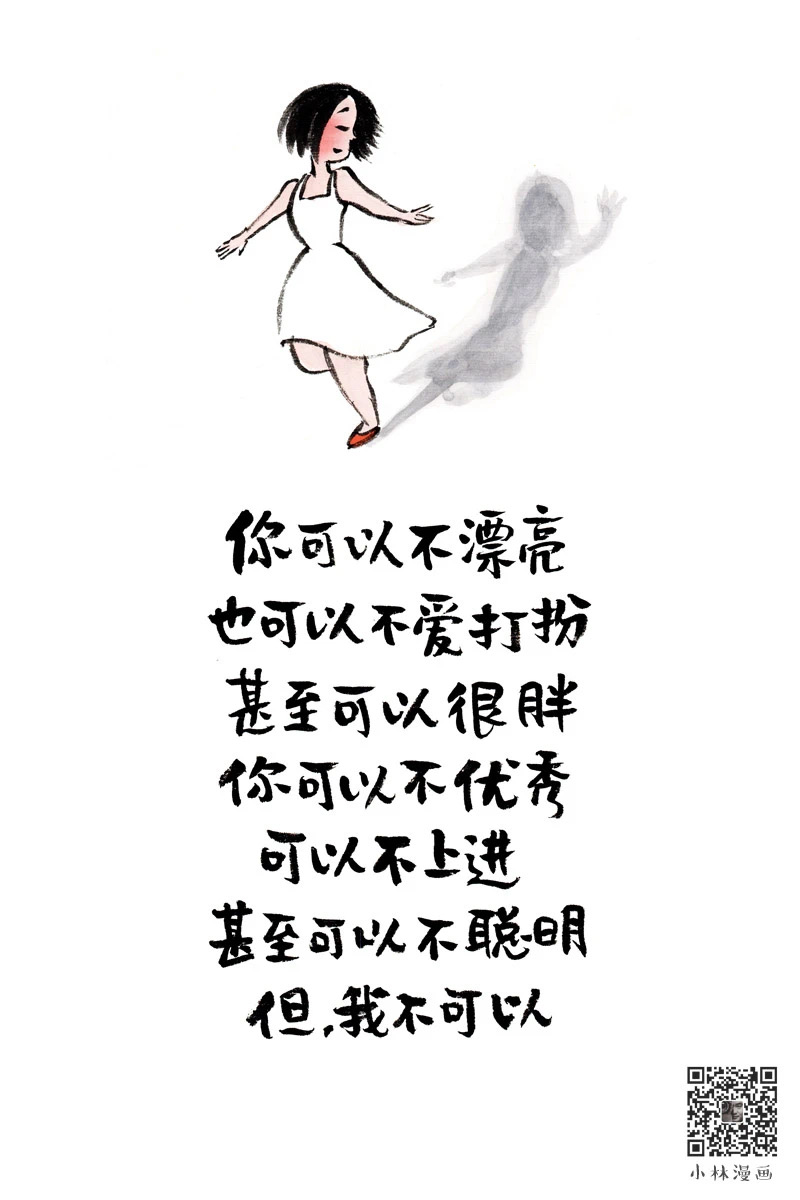 你可以不漂亮
也可以不爱打扮
甚至可以很胖
你可以不优秀
可以不上进
甚至可以不聪明
但,我不可以
小林漫画